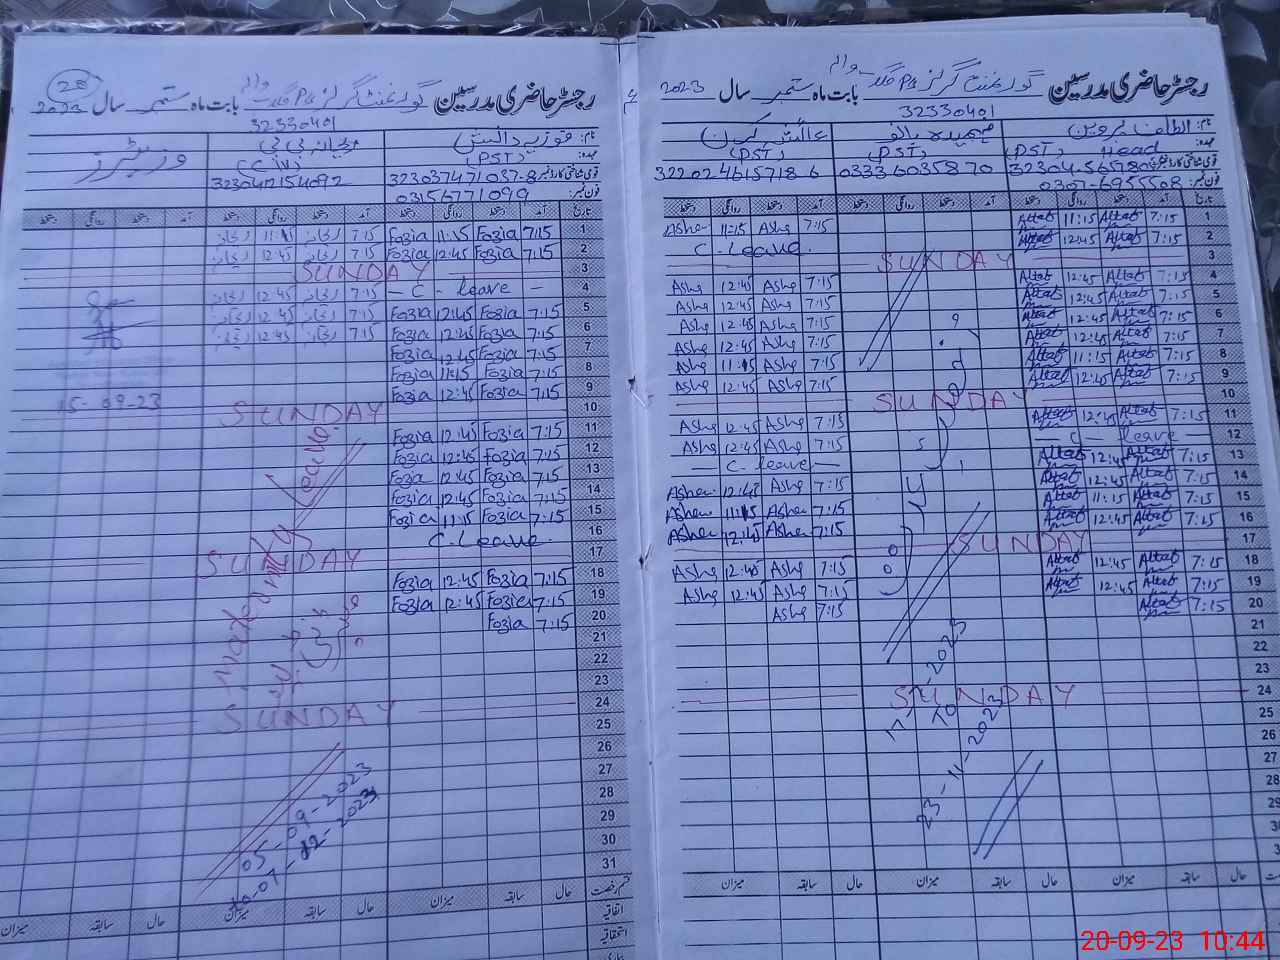 رجسٹر حاضری مدرسین گورنمنٹ گرلز P/S بابت ماہ ستمبر سال 2023
32330401
نام: الطاف پروین
عائشہ کرن
Head (PST)
(PST)
(PST)
03336035870
قومی شناختی کارڈ نمبر
فون نمبر: 0307-6955508
تاریخ آمد دستخط روانگی دستخط آمد دستخط روانگی دستخط آمد دستخط روانگی دستخط
1 7:15 Altab 11:15 Altab 7:15 Ashe 11:15 Ashe
2 7:15 Altab 12:45 Altab C. Leave
3 SUNDAY
4 7:15 Altab 12:45 Altab 7:15 Ashe 12:45 Ashe
5 7:15 Altab 12:45 Altab 7:15 Ashe 12:45 Ashe
6 7:15 Altab 12:45 Altab 7:15 Ashe 12:45 Ashe
7 7:15 Altab 12:45 Altab 7:15 Ashe 12:45 Ashe
8 7:15 Altab 11:15 Altab 7:15 Ashe 11:15 Ashe
9 7:15 Altab 12:45 Altab 7:15 Ashe 12:45 Ashe
10 SUNDAY
11 7:15 Altab 12:45 Altab 7:15 Ashe 12:45 Ashe
12 — C — leave — 7:15 Ashe 12:45 Ashe
13 7:15 Altab 12:45 Altab — C. leave —
14 7:15 Altab 12:45 Altab 7:15 Ashe 12:45 Ashe
15 7:15 Altab 11:15 Altab 7:15 Ashe 11:15 Ashe
16 7:15 Altab 12:45 Altab 7:15 Ashe 12:45 Ashe
17 SUNDAY
18 7:15 Altab 12:45 Altab 7:15 Ashe 12:45 Ashe
19 7:15 Altab 12:45 Altab 7:15 Ashe 12:45 Ashe
20 7:15 Altab 7:15 Ashe
21
22
23
24 SUNDAY
25
26
27
28
29
23-11-2023
میزان سابقہ حال میزان سابقہ حال میزان سابقہ
رجسٹر حاضری مدرسین گورنمنٹ گرلز P/S بابت ماہ ستمبر سال 2023
28
32330401
فوزیہ دانش
ریحانہ بی بی
وزیٹرز
(PST)
32303747 1037-8
3230412154092
03156771099
تاریخ آمد دستخط روانگی دستخط آمد دستخط روانگی دستخط آمد دستخط روانگی دستخط
1 7:15 Fozia 11:15 Fozia 7:15 ریحانہ 11:15 ریحانہ
2 7:15 Fozia 12:45 Fozia 7:15 ریحانہ 12:45 ریحانہ
3 SUNDAY
4 — C - leave — 7:15 ریحانہ 12:45 ریحانہ
5 7:15 Fozia 12:45 Fozia 7:15 ریحانہ 12:45 ریحانہ
6 7:15 Fozia 12:45 Fozia 7:15 ریحانہ 12:45 ریحانہ
7 7:15 Fozia 12:45 Fozia
8 7:15 Fozia 11:15 Fozia
9 7:15 Fozia 12:45 Fozia
15-09-23
10 SUNDAY
11 7:15 Fozia 12:45 Fozia
12 7:15 Fozia 12:45 Fozia
13 7:15 Fozia 12:45 Fozia
14 7:15 Fozia 12:45 Fozia
15 7:15 Fozia 11:15 Fozia
16 C. Leave
17 SUNDAY
18 7:15 Fozia 12:45 Fozia
19 7:15 Fozia 12:45 Fozia
20 7:15 Fozia
21
22
23
24 SUNDAY
25
26
27
28
29
30
31
maternity leave
05-09-2023
نمبر رخصت حال سابقہ میزان حال سابقہ میزان حال سابقہ میزان
اتفاقیہ
استحقاقیہ
20-09-23 10:44